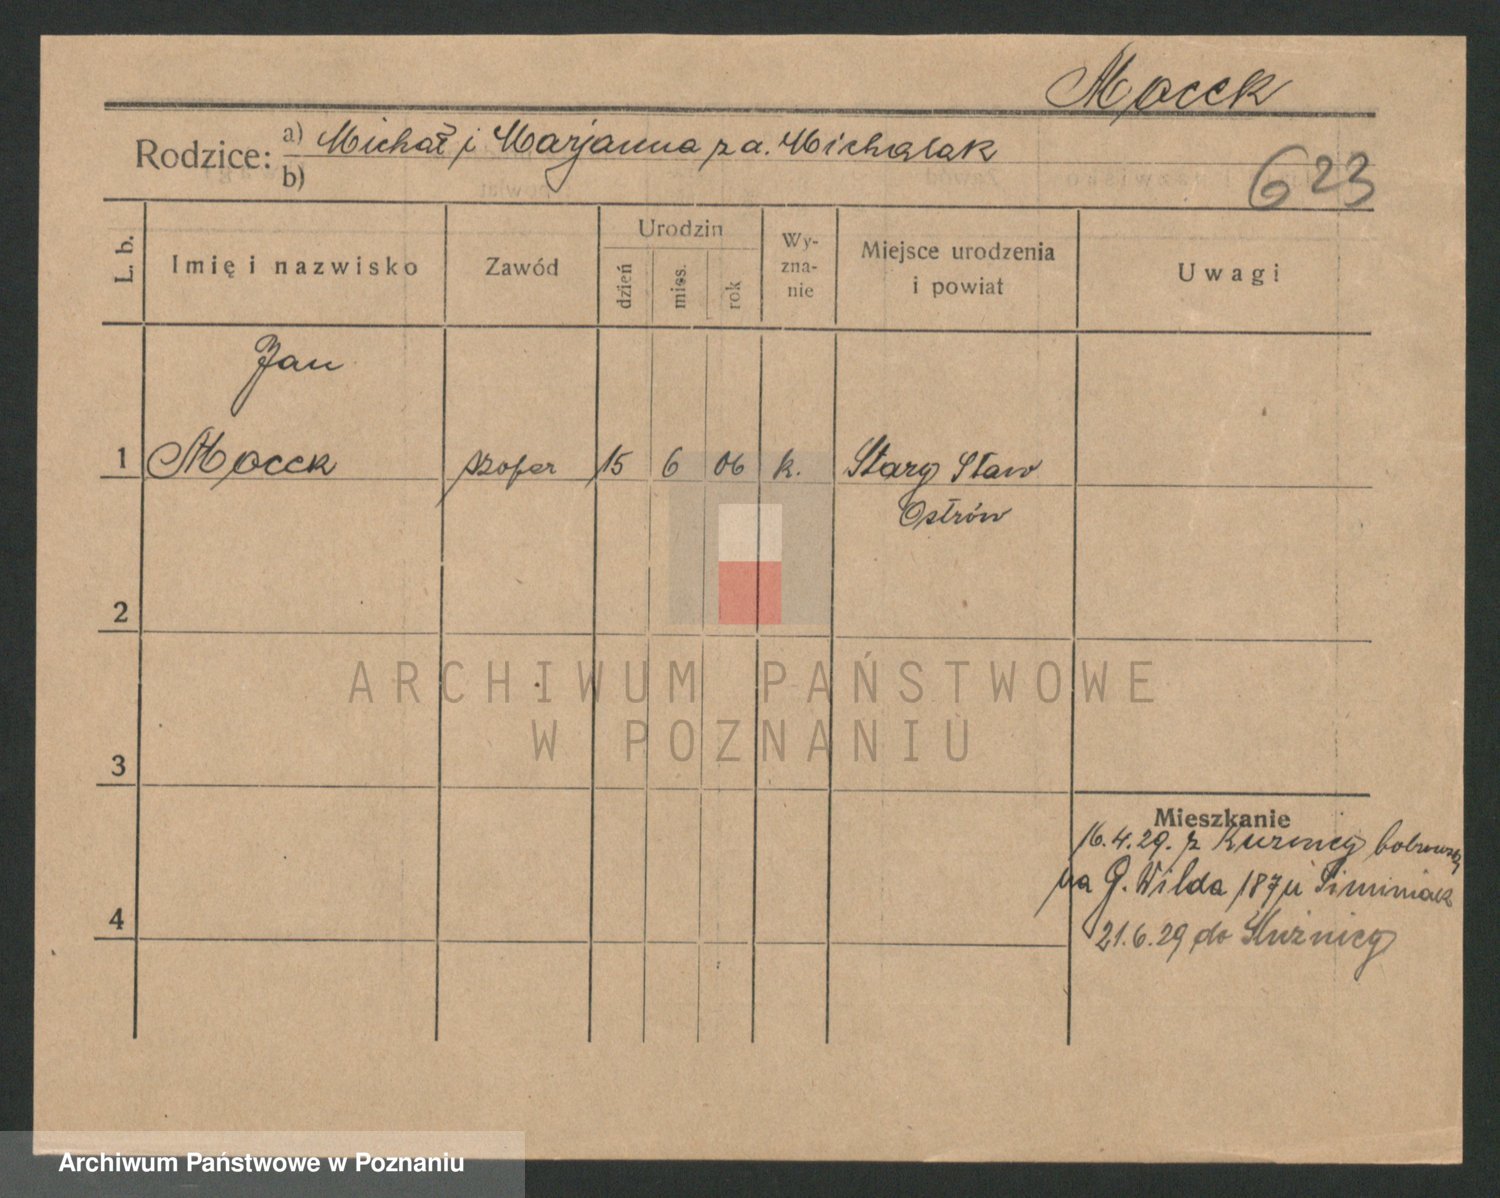 Mocek
Rodzice: a) Michał i Marjanna z d. Michalak
b)
623
L. b.
Imię i nazwisko
Zawód
Urodzin
dzień
mies.
rok
Wy-
zna-
nie
Miejsce urodzenia
i powiat
Uwagi
Jan
1 Mocek szofer 15 6 06 k. Stary Staw
Ostrów
2
3
4
Mieszkanie
16.4.29. z
na G. Wilda 187 u
21.6.29 do Kuźnicy
ARCHIWUM PAŃSTWOWE
W POZNANIU
Archiwum Państwowe w Poznaniu